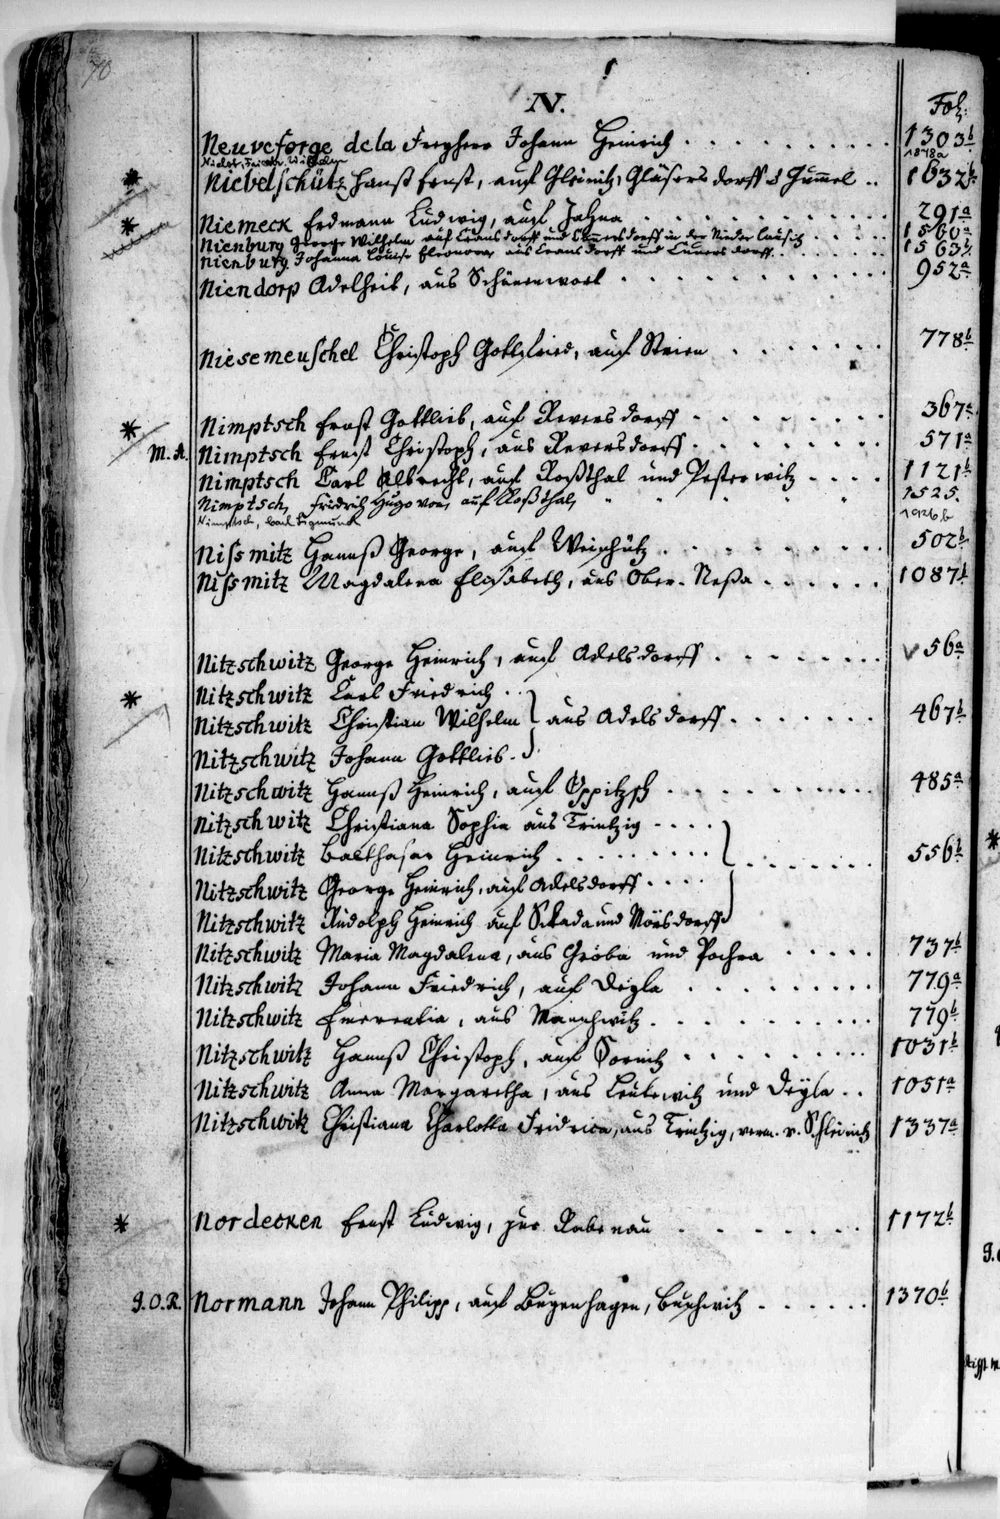 70
N.
Fol:
Neuveforge de la Freyherr Johann Heinrich 1303b
Friedr. Wilhelm 1878a
* Niebelschütz Hanß Ernst, auf Gleinitz, Gläsersdorff & Jummel 1632b
* Niemeck Erdmann Ludwig, auf Jahna 291a
Nienburg George Wilhelm auf und in der Nieder Lausitz 1560a
Nienburg Johanna Louise Eleonora aus und 1563b
Niendorp Adelheit, aus 952a
Niesemeuschel Christoph Gottfried, auf 778b
* Nimptsch Ernst Gottlieb, auf Reversdorff 367a
M. A. Nimptsch Ernst Christoph, aus Reversdorff 571a
Nimptsch Carl Albrecht, auf Roßthal und Pesterwitz 1121b
Nimptsch, Friedrich Hugo von, auf Roßthal, 1525.
Nimptsch, Carl Sigmund 1926b
Nissmitz Hannß George, auf 502b
Nissmitz Magdalena Elisabeth, aus Ober-Neßa 1087b
Nitzschwitz George Heinrich, auf Adelsdorff 56a
* Nitzschwitz Carl Friedrich
Nitzschwitz Christian Wilhelm } aus Adelsdorff 467b
Nitzschwitz Johann Gottlieb
Nitzschwitz Hannß Heinrich, auf Oppitzsch 485a
Nitzschwitz Christiana Sophia aus Trintzig
Nitzschwitz Balthasar Heinrich 556b
Nitzschwitz George Heinrich, auf Adelsdorff
Nitzschwitz Rudolph Heinrich auf Skada und
Nitzschwitz Maria Magdalena, aus Gröba und Pochra 737b
Nitzschwitz Johann Friedrich, auf Deyla 779a
Nitzschwitz Emerentia, aus 779b
Nitzschwitz Hannß Christoph, auf Sornitz 1031b
Nitzschwitz Anna Margaretha, aus Leutewitz und Deyla 1051a
Nitzschwitz Christiana Charlotta Fridrica, aus Trintzig, verm. v. Schleinitz 1337a
* Nordecken Ernst Ludwig, zur Rabenau 1172b
J. O. R. Normann Johann Philipp, auf Bugenhagen, Buschwitz 1370b